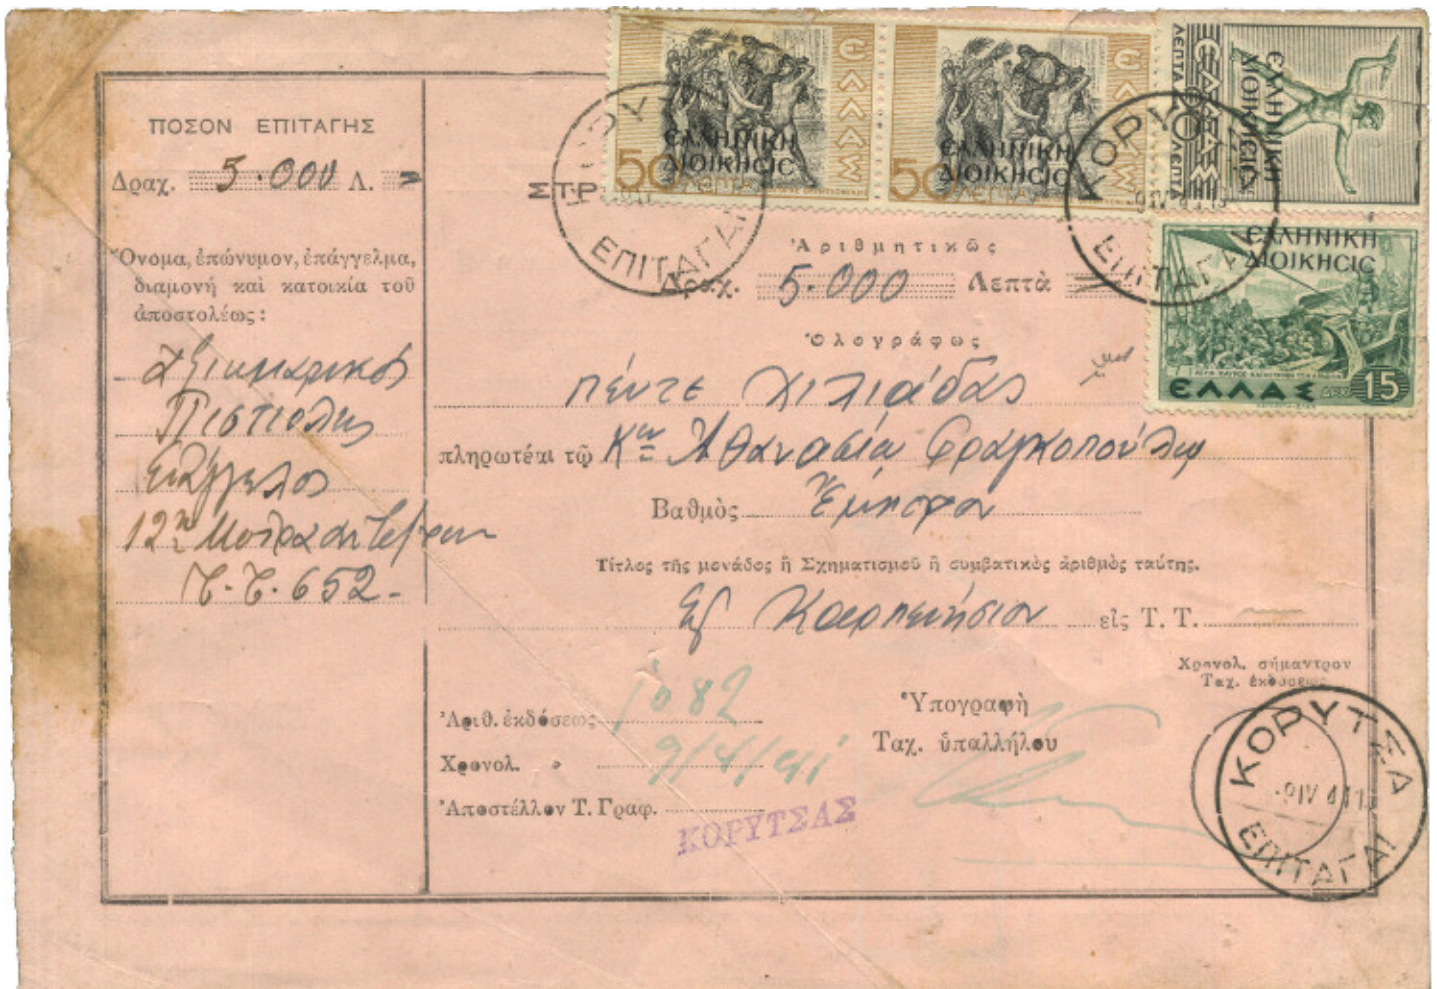 ΠΟΣΟΝ ΕΠΙΤΑΓΗΣ
Δραχ. 5.000 Λ. =
Ὄνομα, ἐπώνυμον, ἐπάγγελμα,
διαμονὴ καὶ κατοικία τοῦ
ἀποστολέως:
Πιστιόλης
Εὐάγγελος
12η Μοῖρα
Τ.Τ. 652-
ΕΛΛΑΣ
50 ΛΕΠΤΑ
ΕΛΛΗΝΙΚΗ
ΔΙΟΙΚΗCΙC
ΕΛΛΑΣ
50 ΛΕΠΤΑ
ΕΛΛΗΝΙΚΗ
ΔΙΟΙΚΗCΙC
ΛΕΠΤΑ ΛΕΠΤΑ
ΕΛΛΑΣ
ΕΛΛΗΝΙΚΗ
ΔΙΟΙΚΗCΙC
ΕΛΛΗΝΙΚΗ
ΔΙΟΙΚΗCΙC
ΕΛΛΑΣ ΔΡΧ 15
ΚΟΡΥ
ΕΠΙΤΑΓΑΙ
ΚΟΡΥ
9 IV 41
ΕΠΙΤΑΓΑΙ
ΣΤΡ
Ἀριθμητικῶς
Δραχ. 5.000 Λεπτὰ =
Ὁλογράφως
πέντε χιλιάδας
πληρωτέαι τῷ Καν Ἀθανασία Φραγκοπούλου
Βαθμὸς
Τίτλος τῆς μονάδος ἢ Σχηματισμοῦ ἢ συμβατικὸς ἀριθμὸς ταύτης.
Εἰς Καρπενήσιον εἰς Τ. Τ.
Χρονολ. σήμαντρον
Ταχ. ἐκδόσεως
Ἀριθ. ἐκδόσεως 1082
Χρονολ. » 9/4/41
Ἀποστέλλον Τ. Γραφ.
ΚΟΡΥΤΣΑΣ
Ὑπογραφὴ
Ταχ. ὑπαλλήλου
ΚΟΡΥΤΣΑ
9 IV 41
ΕΠΙΤΑΓΑΙ